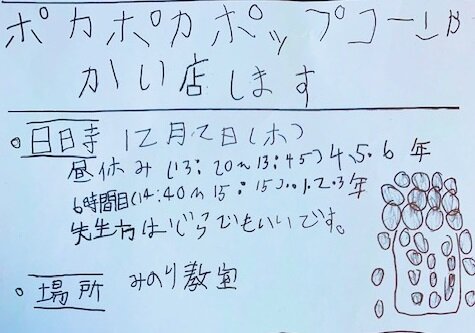 ポカポカポップコーンが
かい店します
・日時 12月2日(木)
昼休み(13:20〜13:45)4、5、6年
6時間目(14:40〜15:15)・・1、2、3年
先生方はどちらでもいいです。
・場所 みのり教室